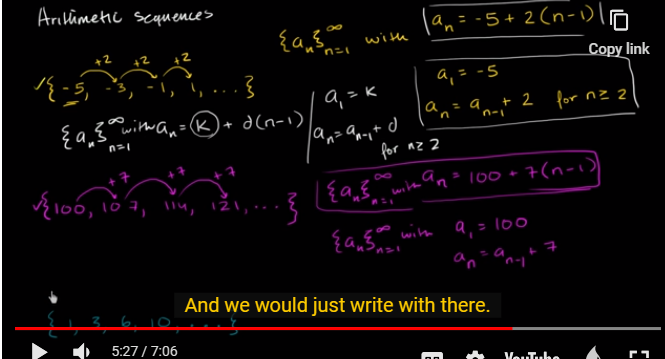 Arithmetic sequences
+2 +2 +2
{-5, -3, -1, 1, ... }
{aₙ}∞ₙ₌₁ with aₙ = -5 + 2(n-1)
Copy link
a₁ = -5
aₙ = aₙ₋₁ + 2 for n ≥ 2
{aₙ}∞ₙ₌₁ with aₙ = K + d(n-1)
a₁ = K
aₙ = aₙ₋₁ + d
for n ≥ 2
+7 +7 +7
{100, 107, 114, 121, ... }
{aₙ}∞ₙ₌₁ with aₙ = 100 + 7(n-1)
{aₙ}∞ₙ₌₁ with a₁ = 100
aₙ = aₙ₋₁ + 7
And we would just write with there.
{1, 3, 6, 10, ... }
5:27 / 7:06
YouTube